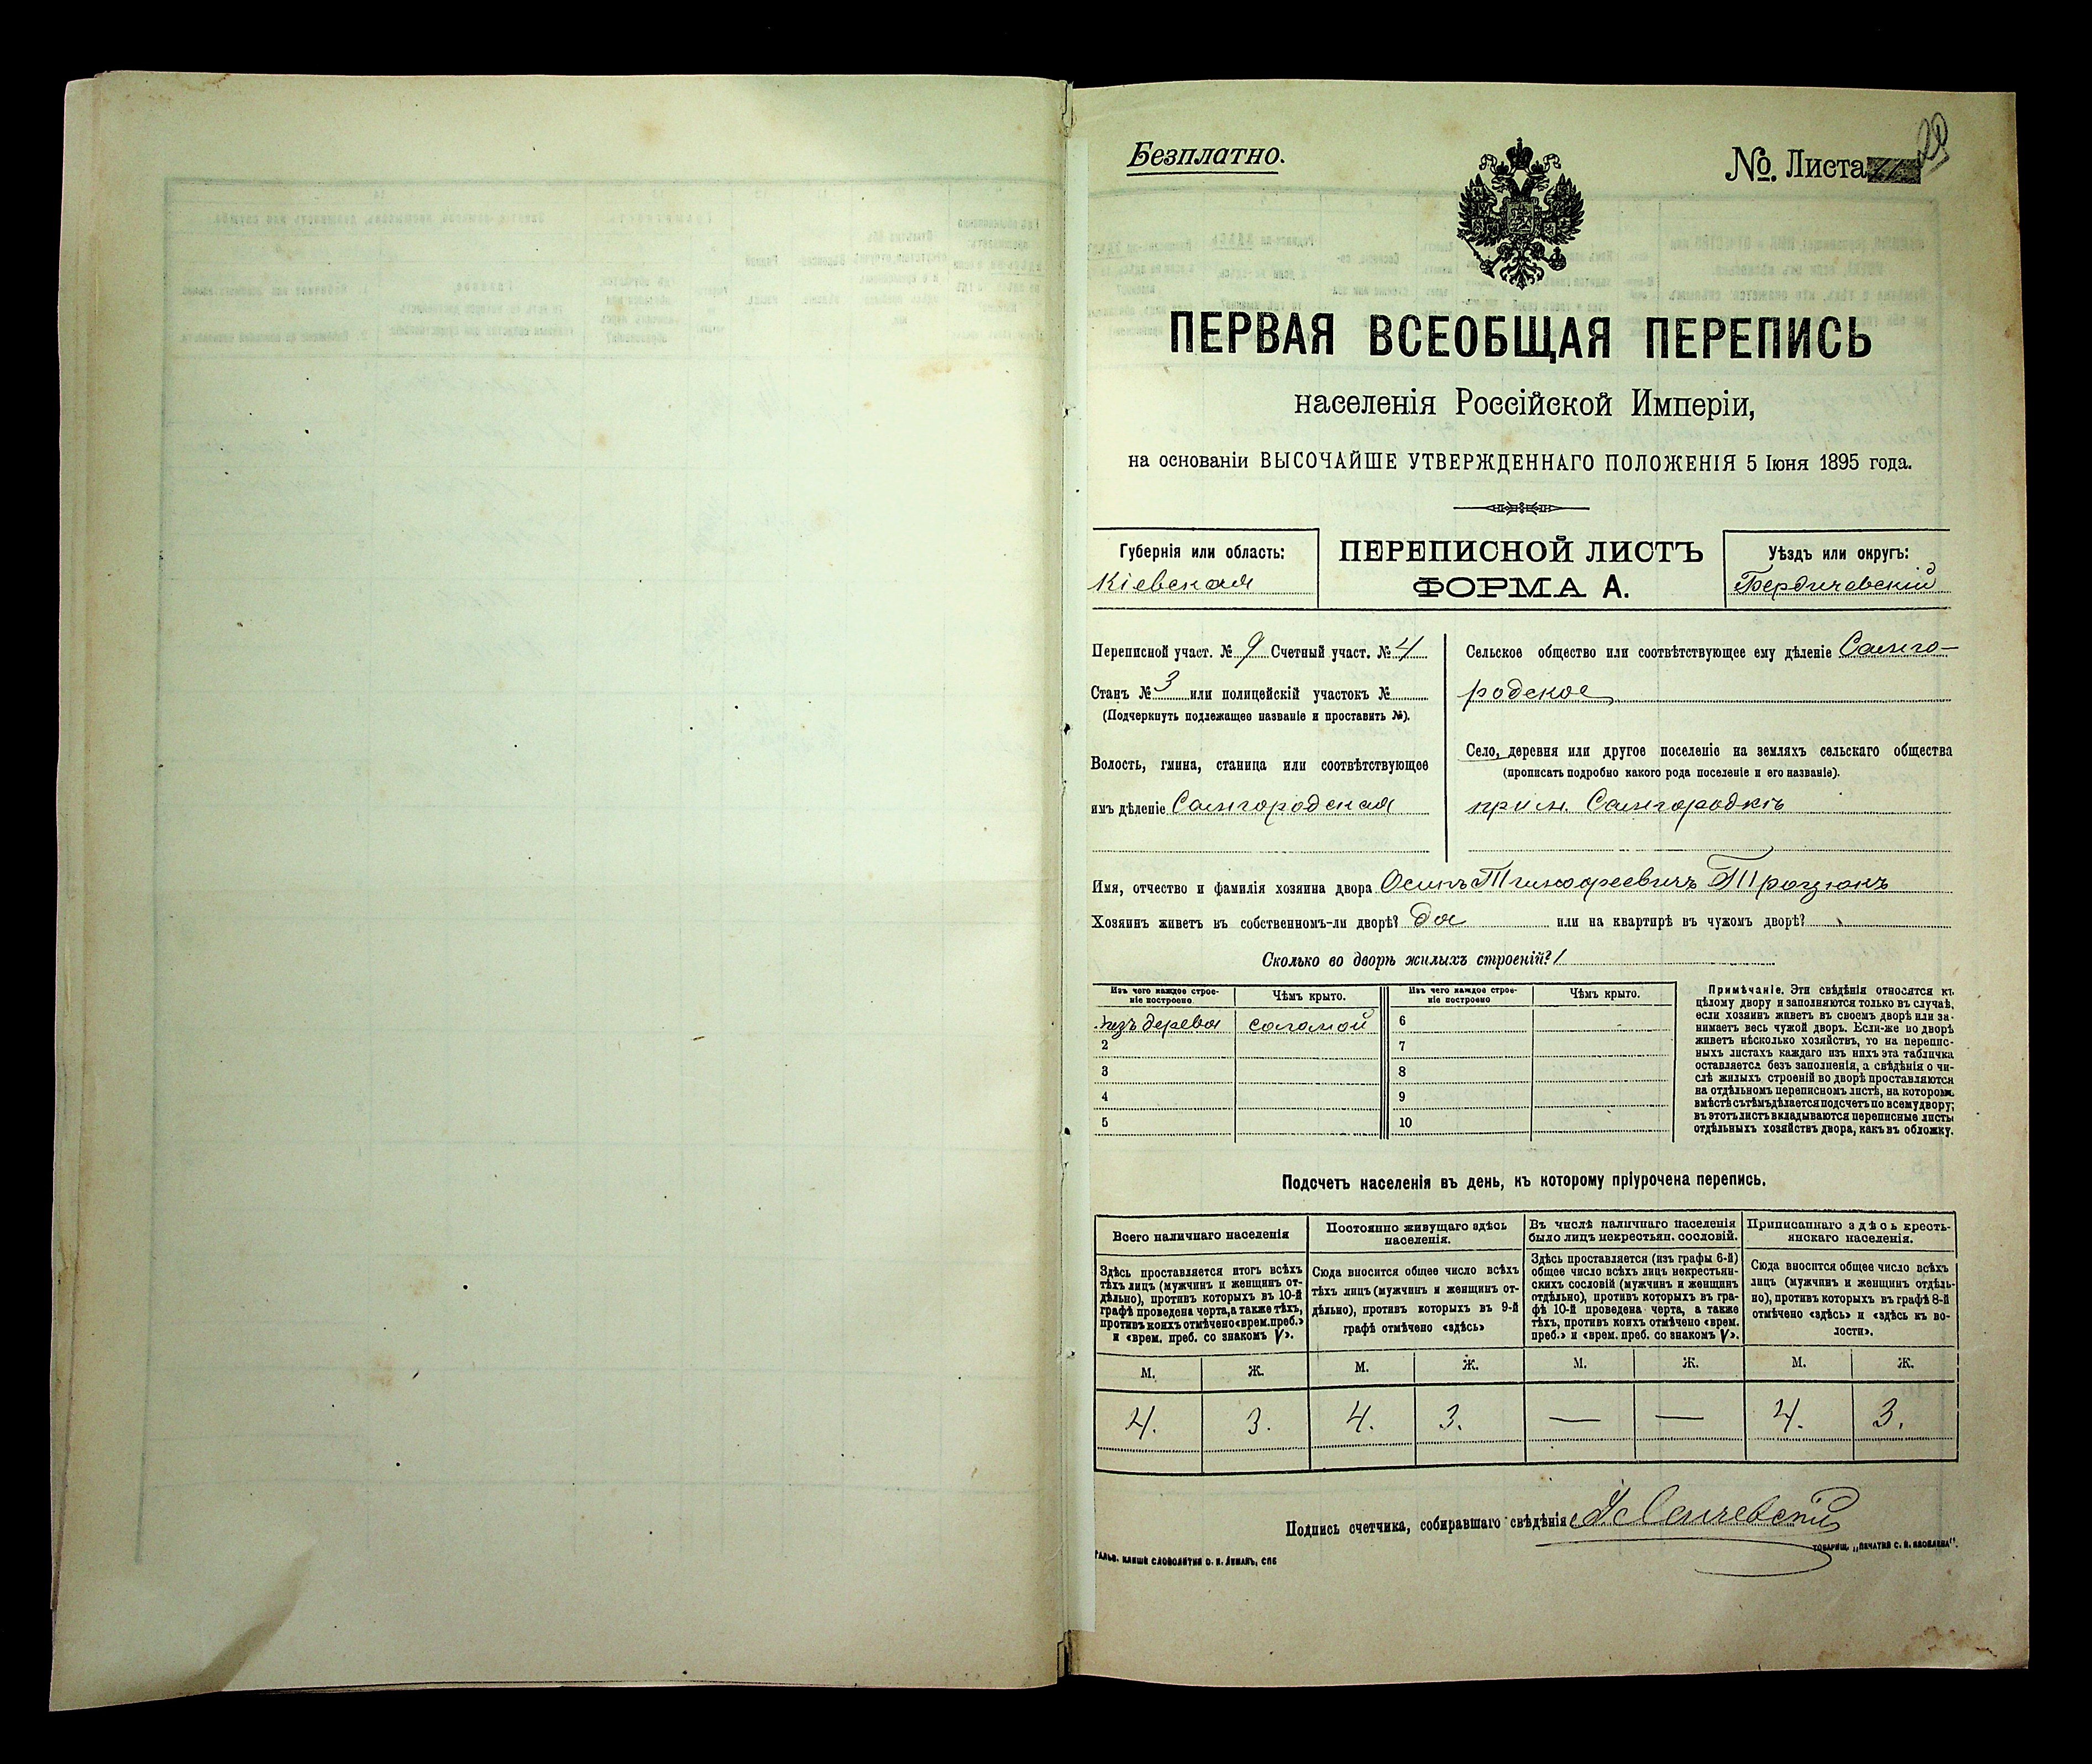 Безплатно.
№. Листа
ПЕРВАЯ ВСЕОБЩАЯ ПЕРЕПИСЬ
населенія Россійской Имперіи,
на основаніи ВЫСОЧАЙШЕ УТВЕРЖДЕННАГО ПОЛОЖЕНІЯ 5 Іюня 1895 года.
Губернія или область:
Кіевская
ПЕРЕПИСНОЙ ЛИСТЪ
ФОРМА А.
Уѣздъ или округъ:
Бердичевскій
Переписной участ. № 9 Счетный участ. № 4
Станъ № 3 или полицейскій участокъ №
(Подчеркнуть подлежащее названіе и проставить №).
Волость, гмина, станица или соотвѣтствующее
имъ дѣленіе Самгородская
Сельское общество или соотвѣтствующее ему дѣленіе Самго-
родское
Село, деревня или другое поселеніе на земляхъ сельскаго общества
(прописать подробно какого рода поселеніе и его названіе).
при м. Самгородкѣ
Имя, отчество и фамилія хозяина двора Осипъ Тимофеевичъ Троцюкъ
Хозяинъ живетъ въ собственномъ-ли дворѣ? да или на квартирѣ въ чужомъ дворѣ?
Сколько во дворѣ жилыхъ строеній? 1
Изъ чего каждое строе-
ніе построено
Чѣмъ крыто.
Изъ чего каждое строе-
ніе построено
Чѣмъ крыто.
изъ дерева соломой 6
2 7
3 8
4 9
5 10
Примѣчаніе. Эти свѣдѣнія относятся къ
цѣлому двору и заполняются только въ случаѣ,
если хозяинъ живетъ въ своемъ дворѣ или за-
нимаетъ весь чужой дворъ. Если-же во дворѣ
живетъ нѣсколько хозяйствъ, то на перепис-
ныхъ листахъ каждаго изъ нихъ эта табличка
оставляется безъ заполненія, а свѣдѣнія о чи-
слѣ жилыхъ строеній во дворѣ проставляются
на отдѣльномъ переписномъ листѣ, на которомъ
вмѣстѣ съ тѣмъ дѣлается подсчетъ по всему двору;
въ этотъ листъ вкладываются переписные листы
отдѣльныхъ хозяйствъ двора, какъ въ обложку.
Подсчетъ населенія въ день, къ которому пріурочена перепись.
Всего наличнаго населенія
Здѣсь проставляется итогъ всѣхъ
тѣхъ лицъ (мужчинъ и женщинъ от-
дѣльно), противъ которыхъ въ 10-й
графѣ проведена черта, а также тѣхъ,
противъ коихъ отмѣчено «врем. преб.»
и «врем. преб. со знакомъ V».
Постоянно живущаго здѣсь
населенія.
Сюда вносится общее число всѣхъ
тѣхъ лицъ (мужчинъ и женщинъ от-
дѣльно), противъ которыхъ въ 9-й
графѣ отмѣчено «здѣсь»
Въ числѣ наличнаго населенія
было лицъ некрестьян. сословій.
Здѣсь проставляется (изъ графы 6-й)
общее число всѣхъ лицъ некрестьян-
скихъ сословій (мужчинъ и женщинъ
отдѣльно), противъ которыхъ въ гра-
фѣ 10-й проведена черта, а также
тѣхъ, противъ коихъ отмѣчено «врем.
преб.» и «врем. преб. со знакомъ V».
Приписаннаго здѣсь кресть-
янскаго населенія.
Сюда вносится общее число всѣхъ
лицъ (мужчинъ и женщинъ отдѣль-
но), противъ которыхъ въ графѣ 8-й
отмѣчено «здѣсь» и «здѣсь къ во-
лости».
М. Ж. М. Ж. М. Ж. М. Ж.
4. 3. 4. 3. — — 4. 3.
Подпись счетчика, собиравшаго свѣдѣнія
ТОВАРИЩ. „ПЕЧАТНЯ С. П. ЯКОВЛЕВА".